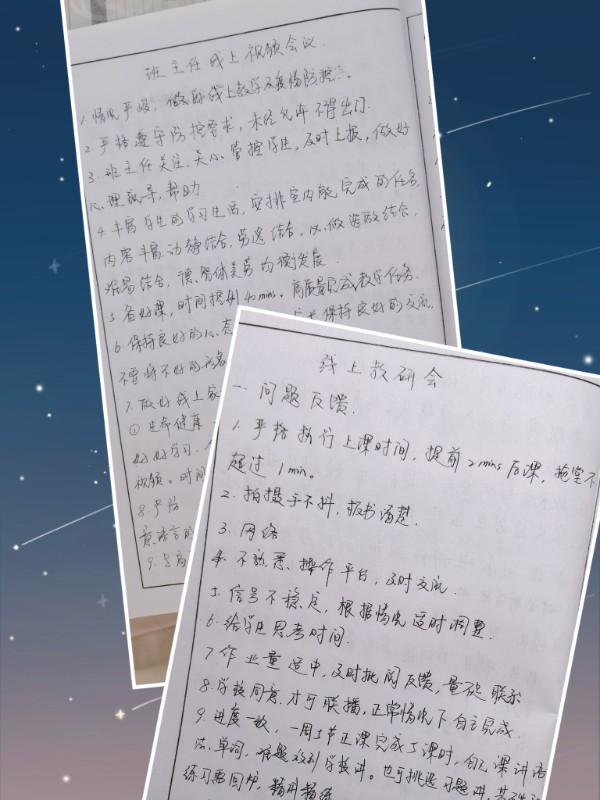 班主任线上视频会议.
1.情况严峻,做好线上教学及疫情防控.
2.严格遵守防控要求,未经允许不得出门.
3.班主任关注、关心、管控学生,及时上报,做好
心理疏导,帮助
4.丰富学生的学习生活,安排室内能完成的任务.
内容丰富,动静结合,劳逸结合,必做选做结合,
难易结合,德、智体美劳均衡发展.
5.备好课,时间控制40mins。高质量完成教学任务.
6.保持良好的心态 保持良好的交流,
不要将不好的
7.做好线上家
①生命健康
好好学习.
视频。时间
8.严格
意语言的
9.与家
线上教研会
一.问题反馈.
1.严格执行上课时间,提前2mins候课,拖堂不
超过1min。
2.拍摄手不抖,板书清楚.
3.网络
4.不熟悉、操作平台,及时交流.
5.信号不稳定,根据情况适时调整.
6.给学生思考时间.
7.作业量适中,及时批阅反馈,联系
8.学校同意,才可联播,正常情况下自主完成.
9.进度一致,一周5节正课完成5课时,自己课讲语
法、单词,难题放到学校讲。也可挑选习题讲,
练习要回炉,精讲精练